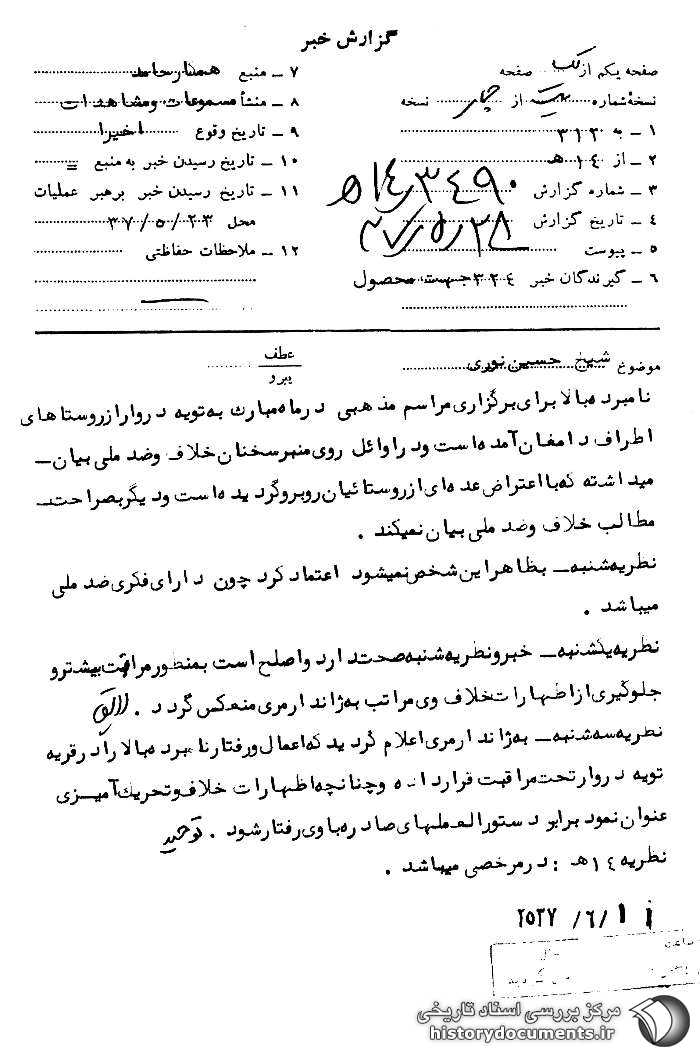 گزارش خبر
صفحه یکم از یک صفحه
نسخه شماره از چهار نسخه
۱ ـ به ۳۱۲
۲ ـ از ۱۴ هـ
۳ ـ شماره گزارش ۱۴٫۳۴۹۰ هـ
۴ ـ تاریخ گزارش ۳۷٫۵٫۲۸
۵ ـ پیوست
۶ ـ گیرندگان خبر ۳۲۴ جهت محصول
۷ ـ منبع همکار حامد
۸ ـ منشأ مسموعات و مشاهدات
۹ ـ تاریخ وقوع اخیرا
۱۰ ـ تاریخ رسیدن خبر به منبع =
۱۱ ـ تاریخ رسیدن خبر برهبر عملیات
محل ۳۷/۵/۲۳
۱۲ ـ ملاحظات حفاظتی
موضوع شیخ حسین نوری
عطف
پیرو
نامبرده بالا برای برگزاری مراسم مذهبی در ماه مبارك به تویه دروار از روستاهای
اطراف دامغان آمده است و در اوائل روی منبر سخنان خلاف و ضد ملی بیان ـ
میداشته که با اعتراض عده ای از روستائیان روبرو گردیده است و دیگر بصراحت ـ
مطالب خلاف و ضد ملی بیان نمیکند .
نظریه شنبه ـ بظاهر این شخص نمیشود اعتماد کرد چون دارای فکری ضد ملی
میباشد .
نظریه یکشنبه ـ خبر و نظریه شنبه صحت دارد و اصلح است بمنظور مراقبت بیشتر و
جلوگیری از اظهارات خلاف وی مراتب به ژاندارمری منعکس گردد .
نظریه سه شنبه ـ به ژاندارمری اعلام گردید که اعمال و رفتار نامبرده بالا را در قریه
تویه دروار تحت مراقبت قرار داده و چنانچه اظهارات خلاف و تحریك آمیزی
عنوان نمود برابر دستورالعملهای صادره با وی رفتار شود . توحید
نظریه ۱۴ هـ : در مرخصی میباشد .
۲۵۳۷ /۶/۱۱
مرکز بررسی اسناد تاریخی
historydocuments.ir